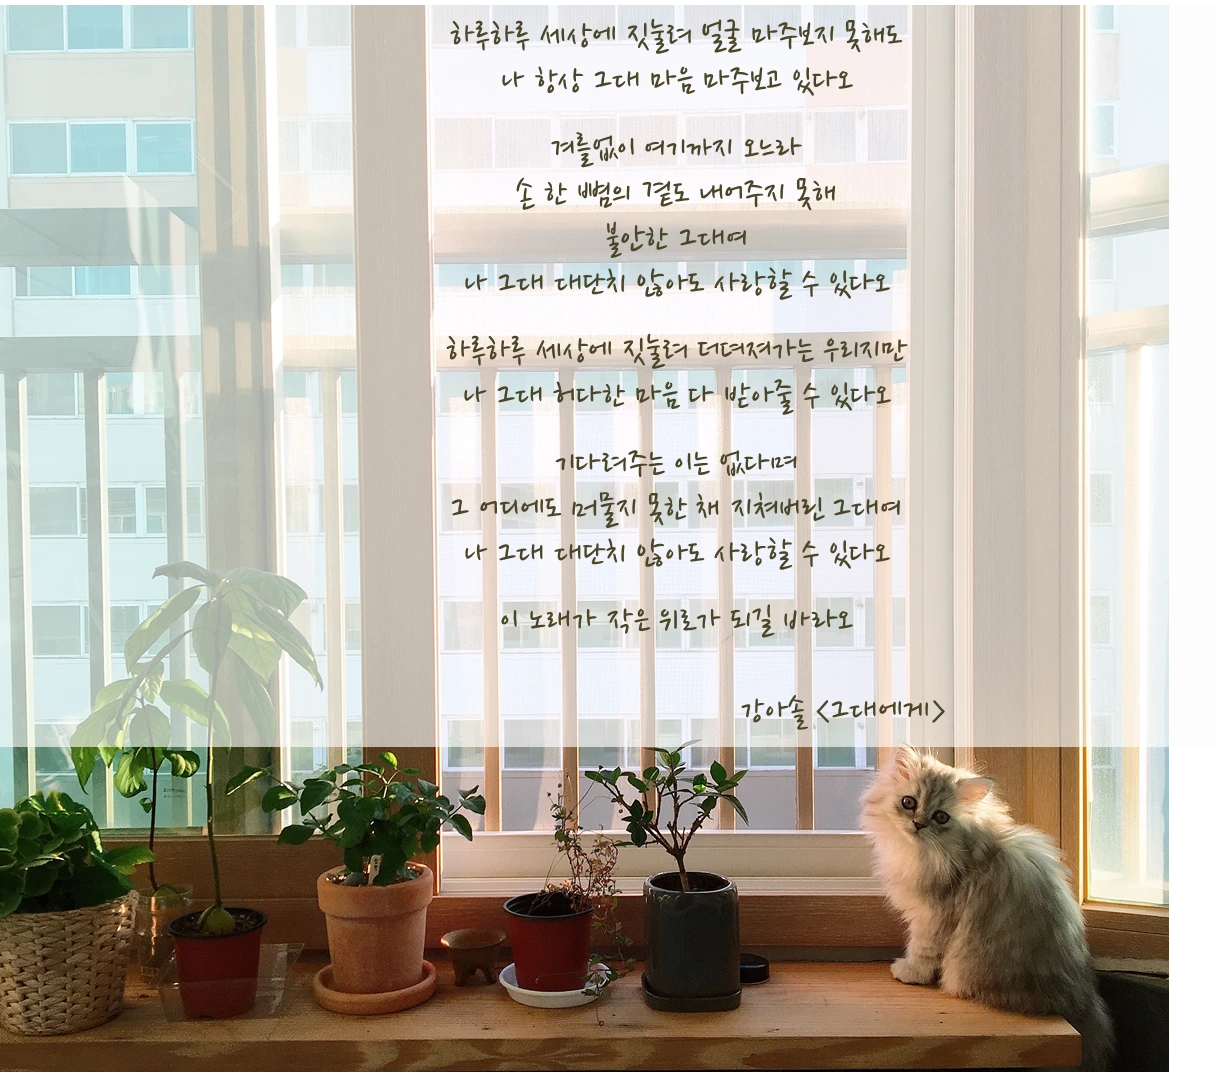 하루하루 세상에 짓눌려 얼굴 마주보지 못해도
나 항상 그대 마음 마주보고 있다오
겨를없이 여기까지 오느라
손 한 뼘의 곁도 내어주지 못해
불안한 그대여
나 그대 대단치 않아도 사랑할 수 있다오
하루하루 세상에 짓눌려 더뎌져가는 우리지만
나 그대 허다한 마음 다 받아줄 수 있다오
기다려주는 이는 없다며
그 어디에도 머물지 못한 채 지쳐버린 그대여
나 그대 대단치 않아도 사랑할 수 있다오
이 노래가 작은 위로가 되길 바라오
강아솔 <그대에게>